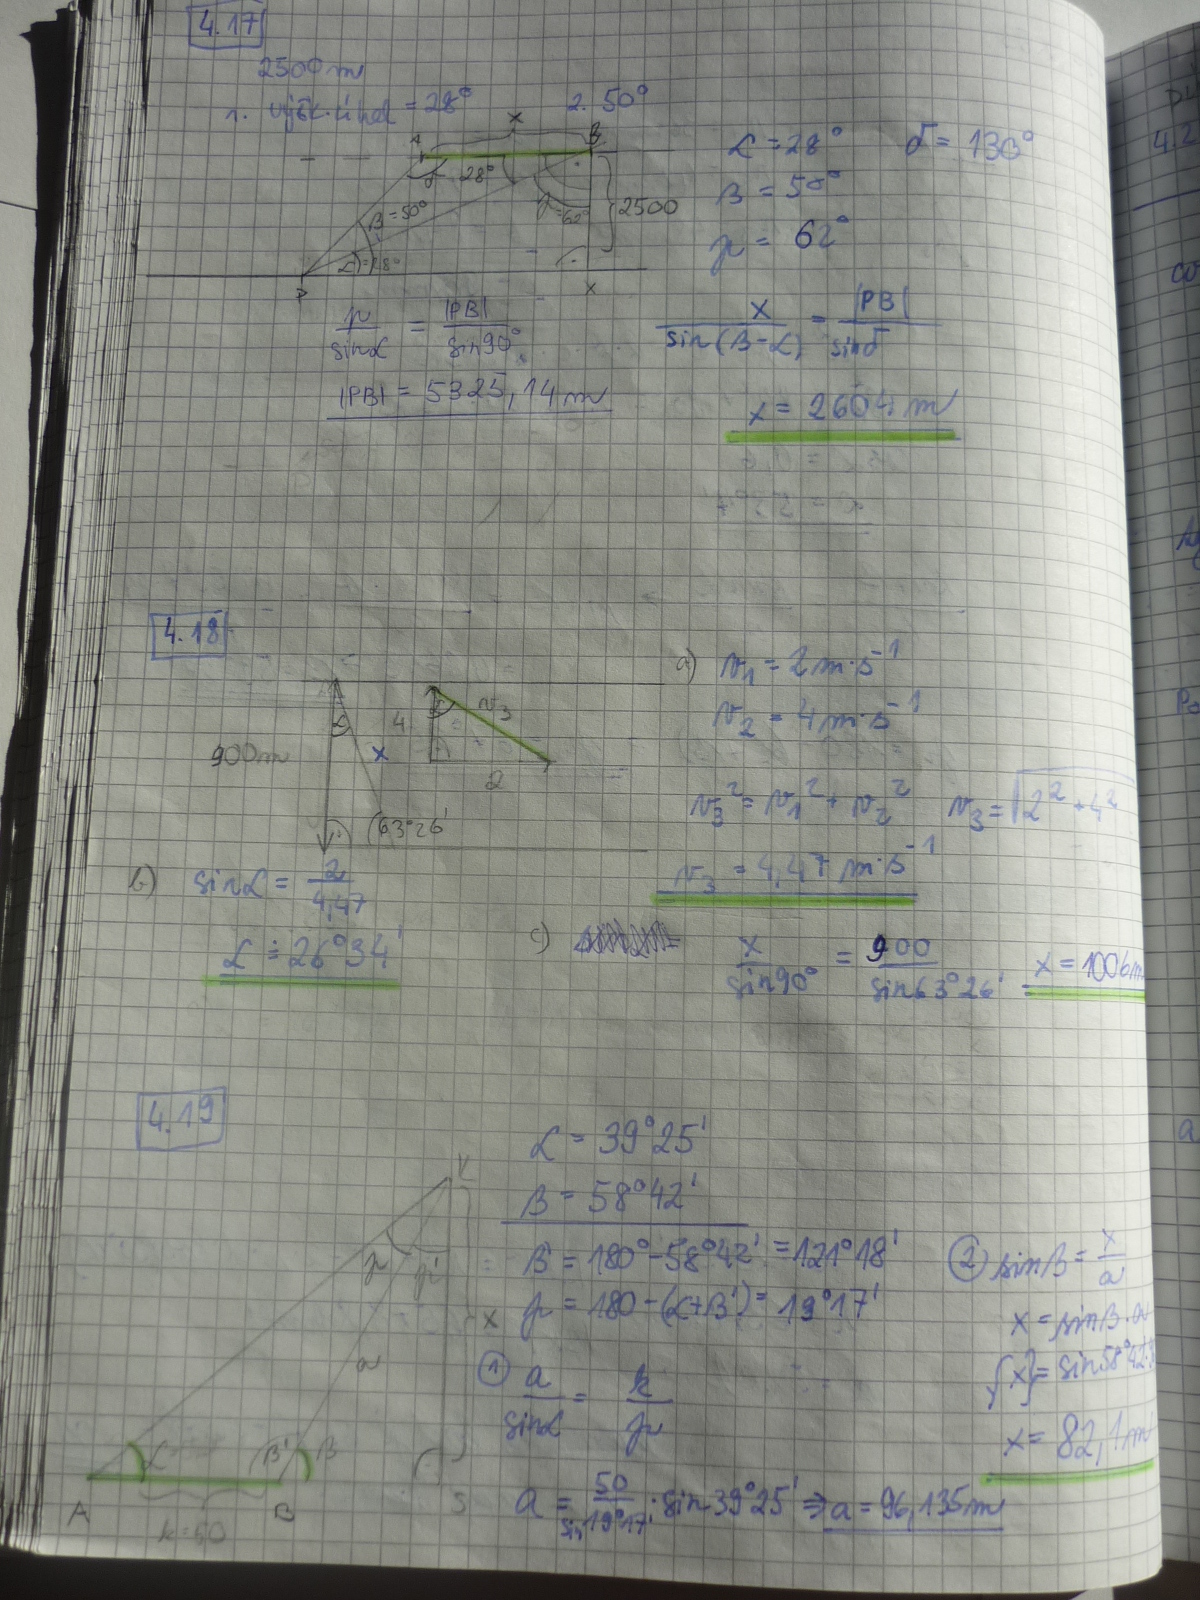 4.17
2500 m
1. výšk. úhel = 28°
2. 50°
x
A
B
28°
γ = 62°
2500
β = 50°
α = 28°
P
X
α = 28°
δ = 130°
β = 50°
γ = 62°
p / sin α = |PB| / sin 90°
x / sin(β-α) = |PB| / sin δ
|PB| = 5325,14 m
x = 2604 m
4.18
900 m
α
x
63°26'
4
α
v3
2
a) v1 = 2 m·s⁻¹
v2 = 4 m·s⁻¹
v3² = v1² + v2²
v3 = √2² + 4²
v3 = 4,47 m·s⁻¹
b) sin α = 2 / 4,47
α ≐ 26°34'
c)
x / sin 90° = 900 / sin 63°26'
x = 1006 m
4.19
α = 39°25'
β = 58°42'
β' = 180° - 58°42' = 121°18'
γ = 180 - (α+β') = 19°17'
① a / sin α = k / γ
a = 50 / sin 19°17' · sin 39°25' ⇒ a = 96,135 m
② sin β = x / a
x = sin β · a
{x} = sin 58°42'
x = 82,1 m
V
γ
γ'
x
a
α
β'
β
A
B
S
k = 50